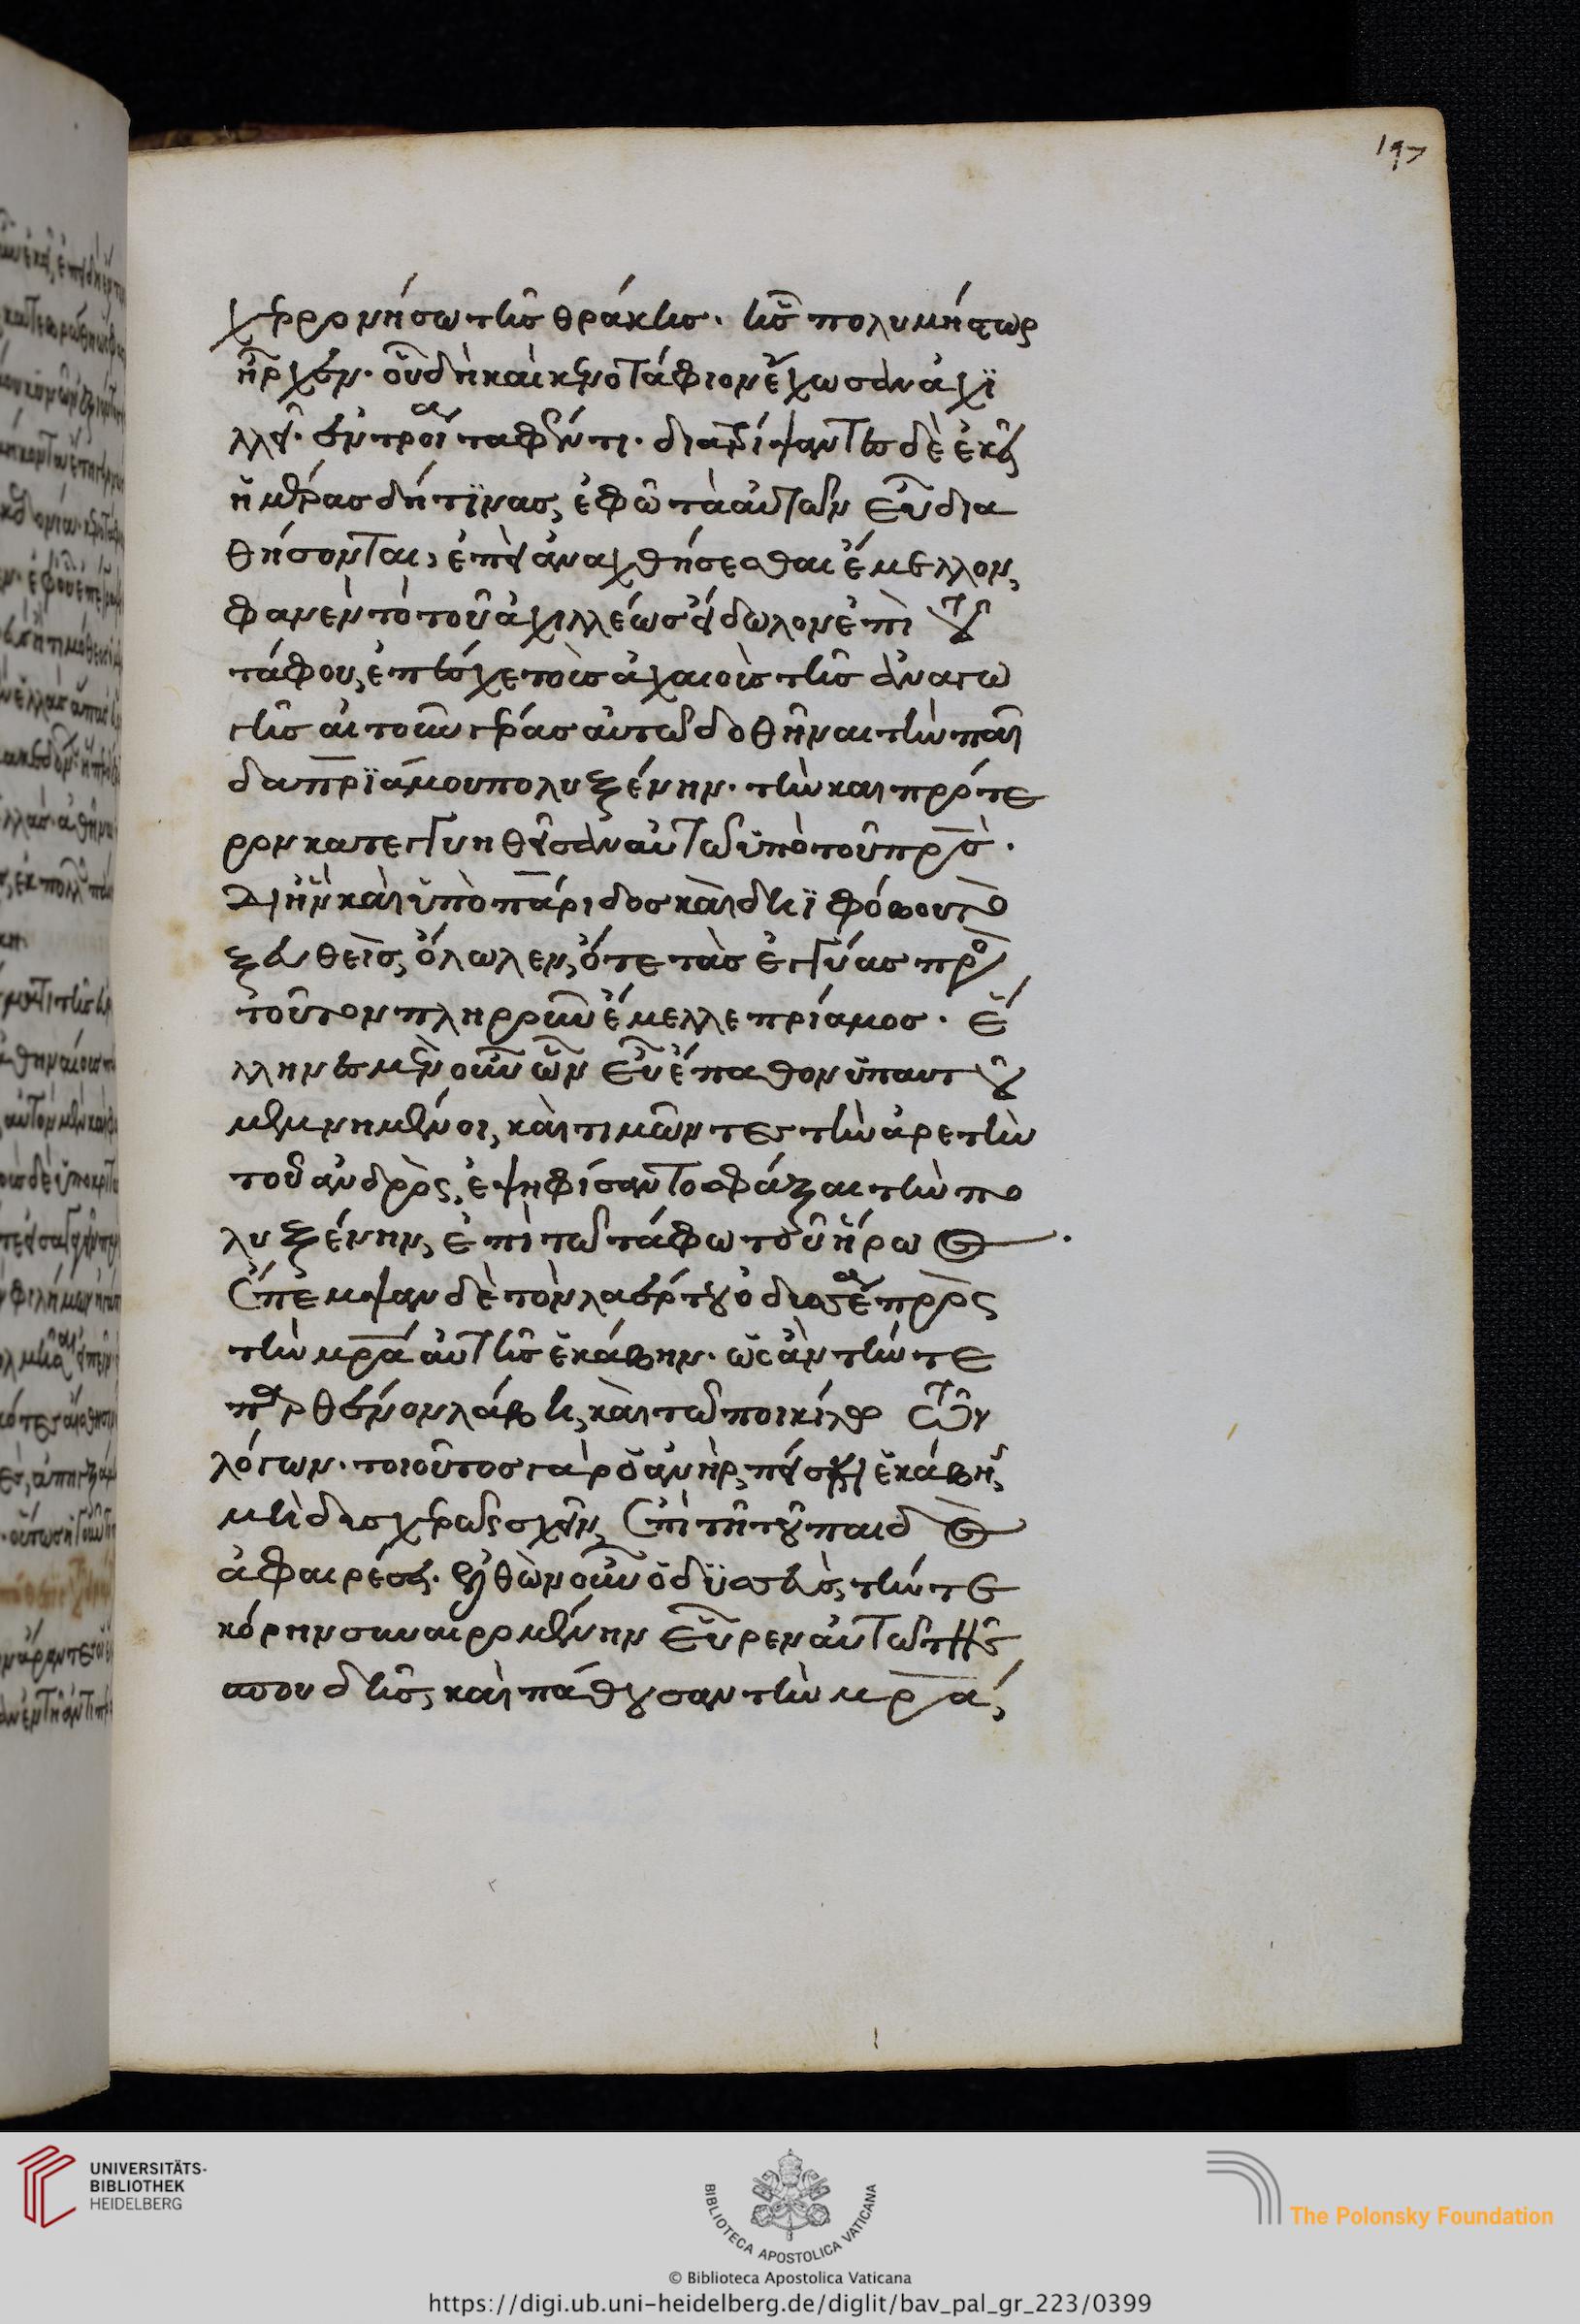 197
χερρονήσω τῆς θράκης. ἧς πολυμήστωρ
ἦρχεν. οὗ δὴ καὶ κενοτάφιον ἔχωσαν ἀχι
λλεῖ. ἐν τροία ταφέντι. διατρίψαντες δὲ ἐκεῖ
ἡμέρας δή τινας, ἐφῶ τὰ αὐτῶν εὖ δια
θήσονται, ἐπεὶ ἀναχθήσεσθαι ἔμελλον,
φανὲν τὸ τοῦ ἀχιλλέως εἴδωλον ἐπὶ τοῦ
τάφου, ἐπέσχε τοὺς ἀχαιοὺς τῆς ἀναγω
γῆς αἰτοῦν γέρας αὐτῶ δοθῆναι τὴν παῖ
δα πριάμου πολυξένην. τὴν καὶ πρότε
ρον κατεγγυηθεῖσαν αὐτῶ ὑπὸ τοῦ πρσ.
δι ἣν καὶ ὑπὸ πάριδος καὶ δηϊφόβου το
ξευθεὶς, ὄλωλεν, ὅτε τὰς ἐγγύας πρὸς
τοῦτον πληροῦν ἔμελλε πρίαμος. ἕ
λληνες μὲν οὖν ὧν εὖ ἔπαθον ὑπ αυτοῦ
μεμνημένοι, καὶ τιμῶντες τὴν ἀρετὴν
τοῦ ἀνδρὸς, ἐψηφίσαντο σφάξαι τὴν πο
λυξένην, ἐπὶ τῶ τάφω τοῦ ἥρωος.
ἔπεμψαν δὲ τὸν λαέρτου ὀδυσσέα πρὸς
τὴν μρα αὐτῆς ἑκάβην. ὡς ἂν τήν τε
παρθένον λάβη, καὶ τῶ ποικίλω τῶν
λόγων. τοιοῦτος γὰρ ὁ ἀνὴρ, πείση ἑκάβην,
μὴ δυσχερῶς σχεῖν, ἐπὶ τῆ τοῦ παιδὸς
ἀφαιρέσει. ἐλθὼν οὖν ὀδυσσεὺς, τήν τε
κόρην συναιρομένην εὗρεν αὐτῶ τῆς
σπουδῆς, καὶ πάθουσαν τὴν μρα,
UNIVERSITÄTS-
BIBLIOTHEK
HEIDELBERG
BIBLIOTECA APOSTOLICA VATICANA
The Polonsky Foundation
© Biblioteca Apostolica Vaticana
https://digi.ub.uni-heidelberg.de/diglit/bav_pal_gr_223/0399